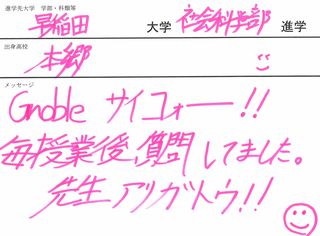 進学先大学 学部・科類等
早稲田 大学 社会科学部 進学
出身高校
本郷
メッセージ
Gnoble サイコォー!!
毎授業後、質問してました。
先生アリガトウ!!